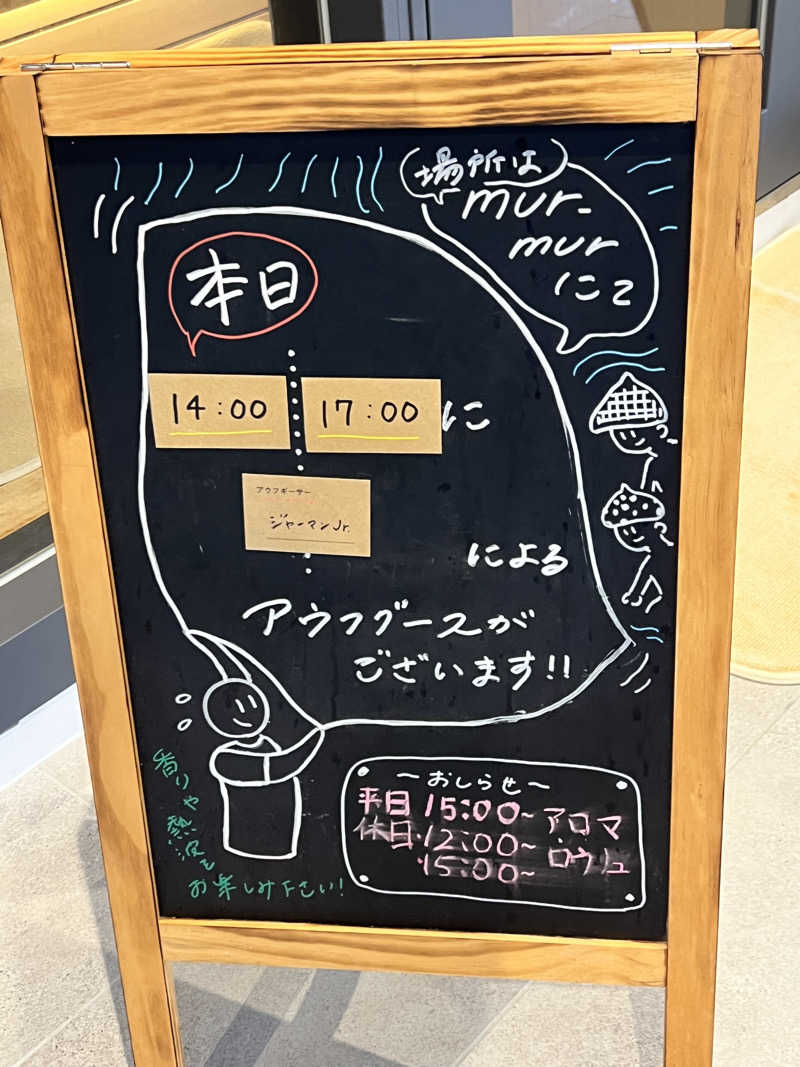 場所は
mur-
mur
にて
本日
14:00
17:00
に
アウフギーサー
ジャーマンJr.
による
アウフグースが
ございます!!
香りや熱波を
お楽しみ下さい!
〜おしらせ〜
平日 15:00~ アロマ
休日・12:00~ ロウリュ
・15:00~